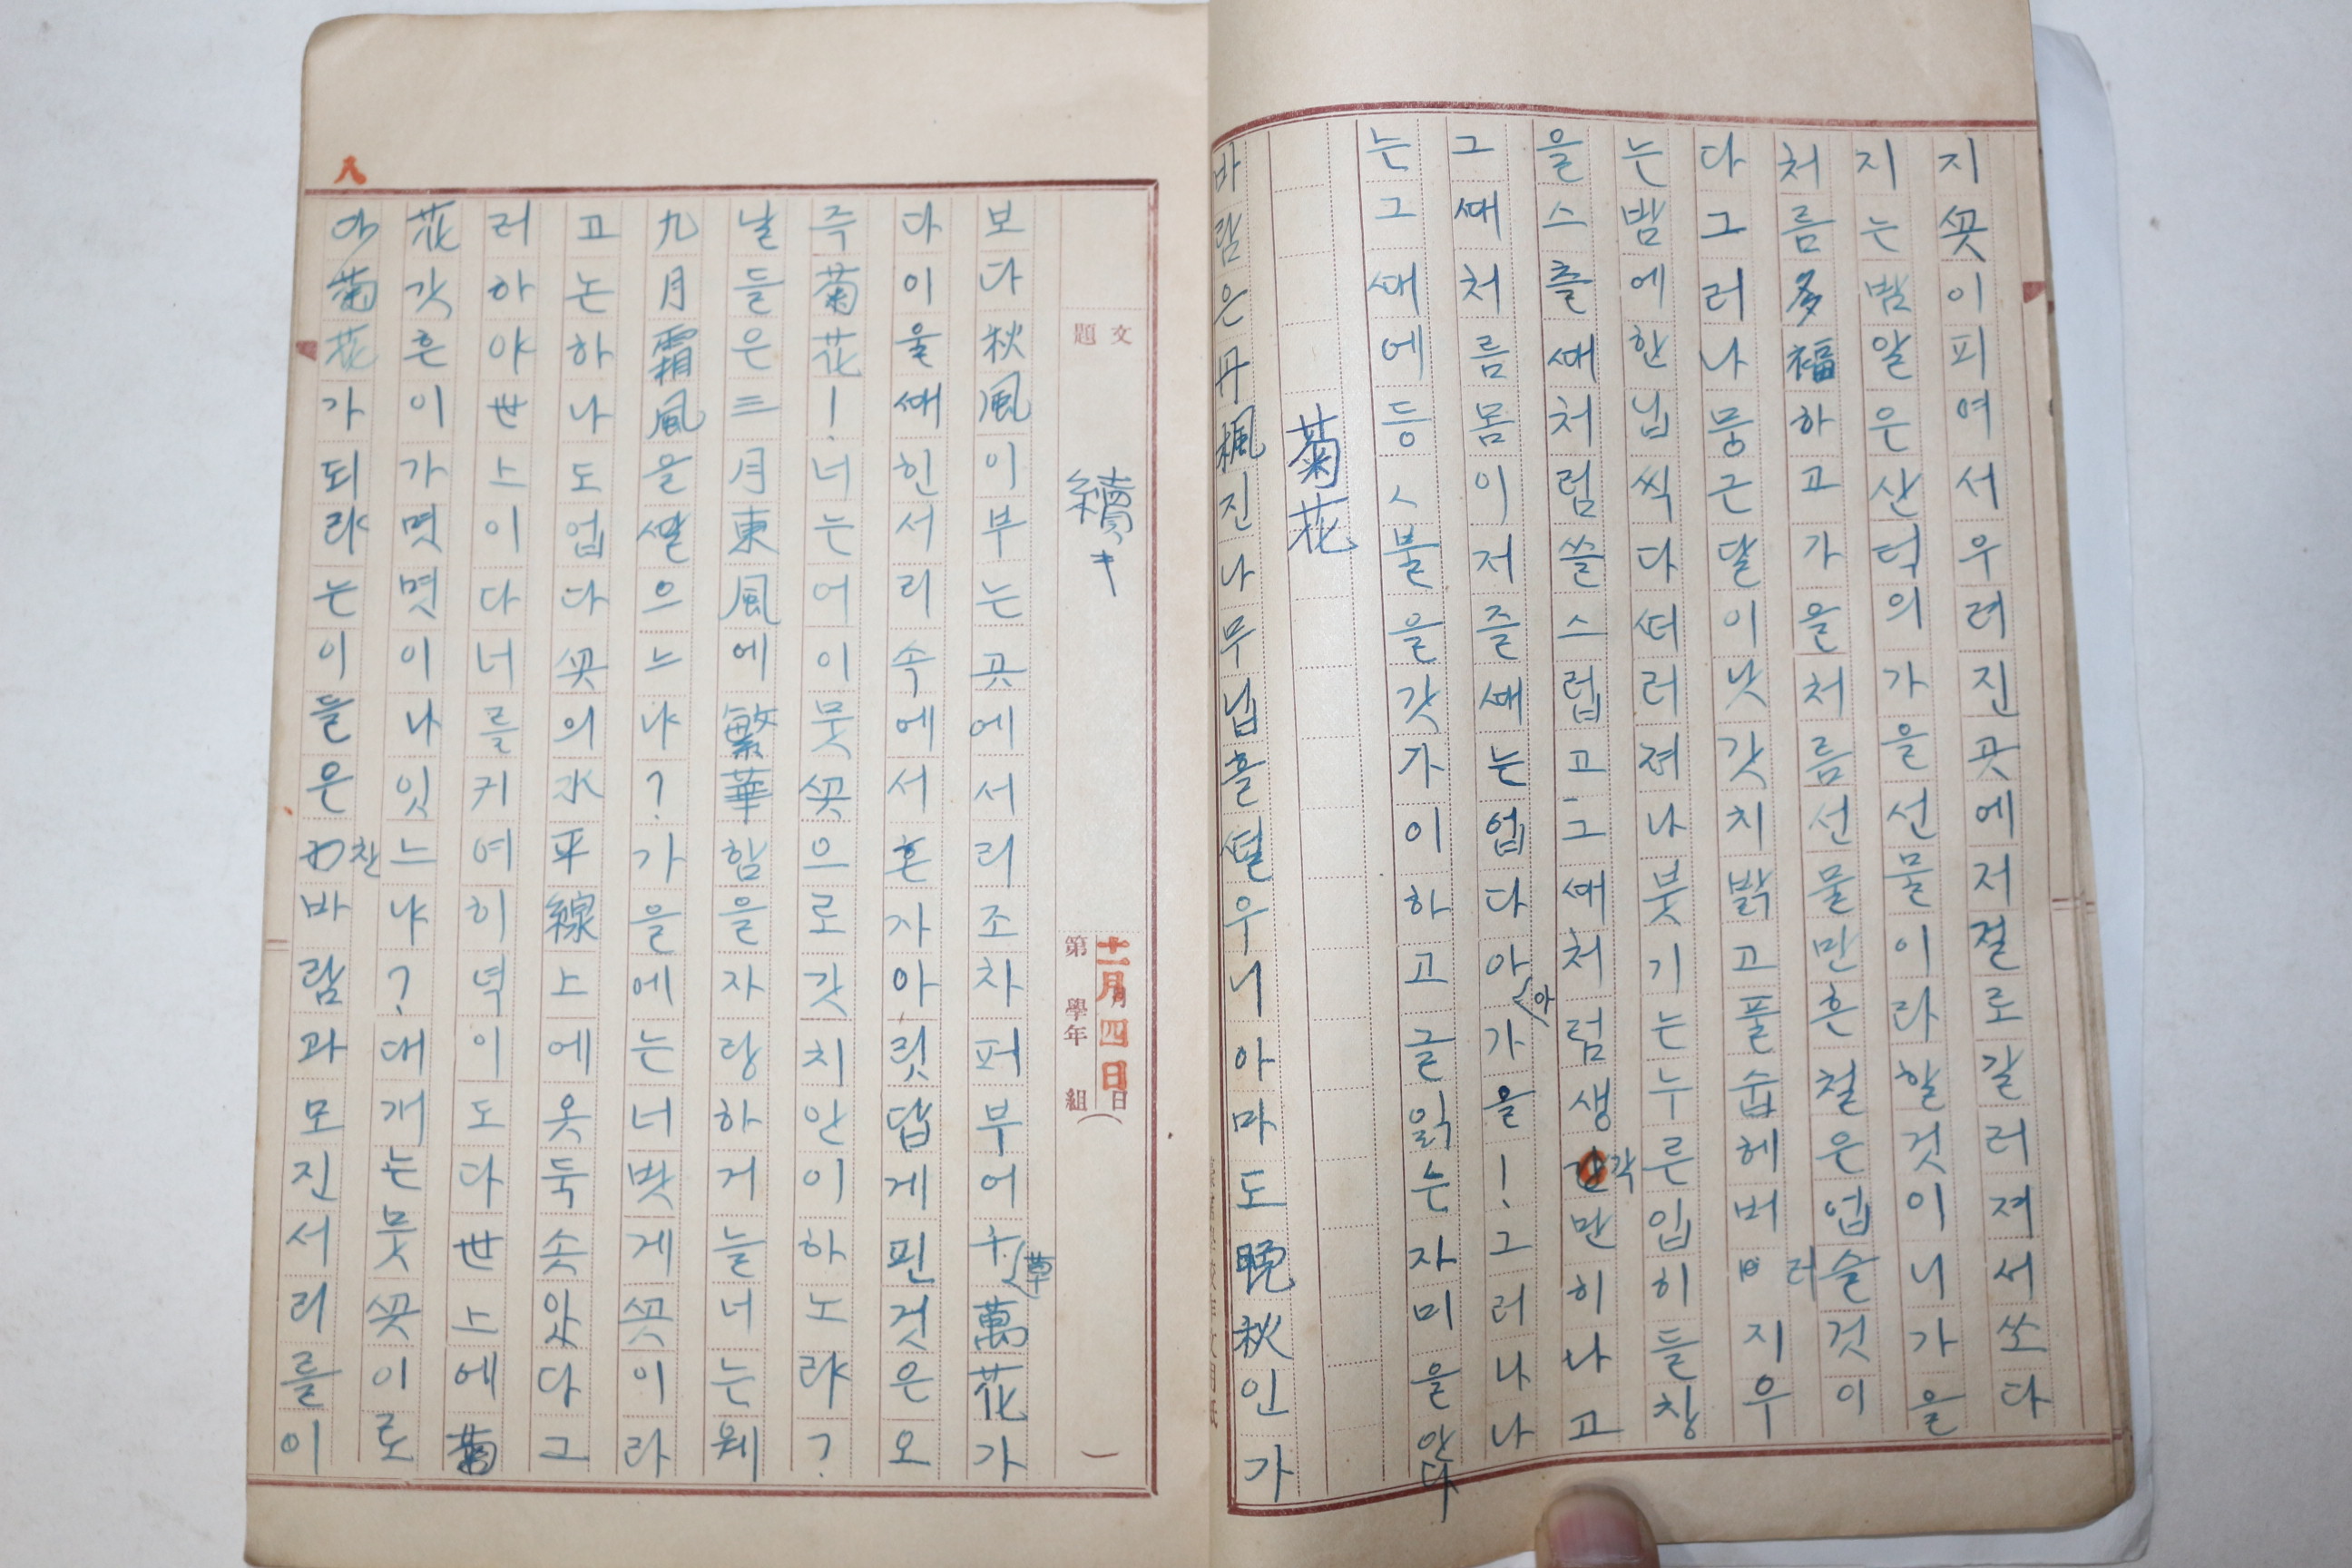 지꼿이피여서우려진곳에저절로갈러져서쏘다
지는밤알은산턱의가을선물이라할것이니가을
처름多福하고가을처름선물만흔철은업슬것이
다그러나뭉근달이낫갓치밝고풀숩헤버러지우
는밤에한닙씩다떠러져나붓기는누른입히들창
을스츨때처럼쓸스럽고그때처럼생각만히나고
그때처름몸이저즐때는업다아아가을!그러나
는그때에등ㅅ불을갓가이하고글읽는자미을안다
菊花
바람은丹楓진나무닙흘떨우니아마도晩秋인가
文題
續キ
十二月四日
第 學年 組
보다秋風이부는곳에서리조차퍼부어千草萬花가
다이울때힌서리속에서혼자아릿답게핀것은오
즉菊花!너는어이뭇꼿으로갓치안이하노랴?
날들은三月東風에繁華함을자랑하거늘너는왜
九月霜風을딸으느냐?가을에는너밧게꼿이라
고는하나도업다꼿의水平線上에옷둑솟앗다그
러하야世上이다너를커여히녁이도다世上에菊
花갓흔이가몃몃이나잇느냐?대개는뭇꼿이로
다菊花가되랴는이들은찬바람과모진서리를이